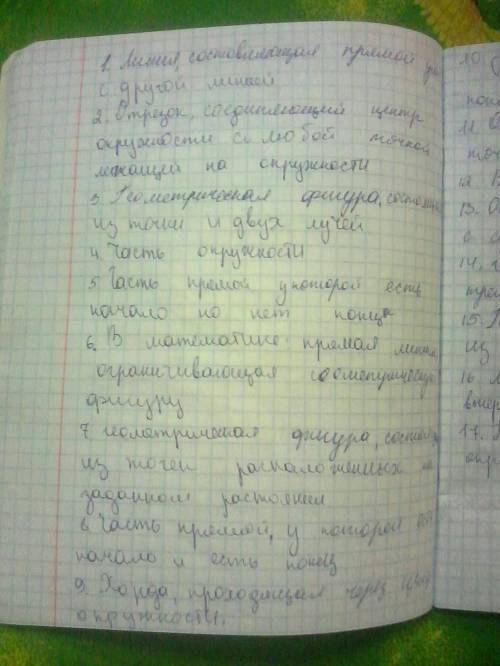 1. Линия, составляющая прямой
с другой линией
2. Отрезок, соединяющий центр
окружности с любой точкой
лежащий на окружности
3. Геометрическая фигура,
из точки и двух лучей
4. Часть окружности
5. Часть прямой у которой есть
начало но нет конца
6. В математике прямая линия
ограничивающая
фигуру
7 геометрическая фигура,
из точек расположенных на
заданном растоянии
8. Часть прямой, у которой
начало и есть конец
9. Хорда, проходящая через
окружности.
10.
11
12. В
13. О
с
14.
15. П
из
16
17.